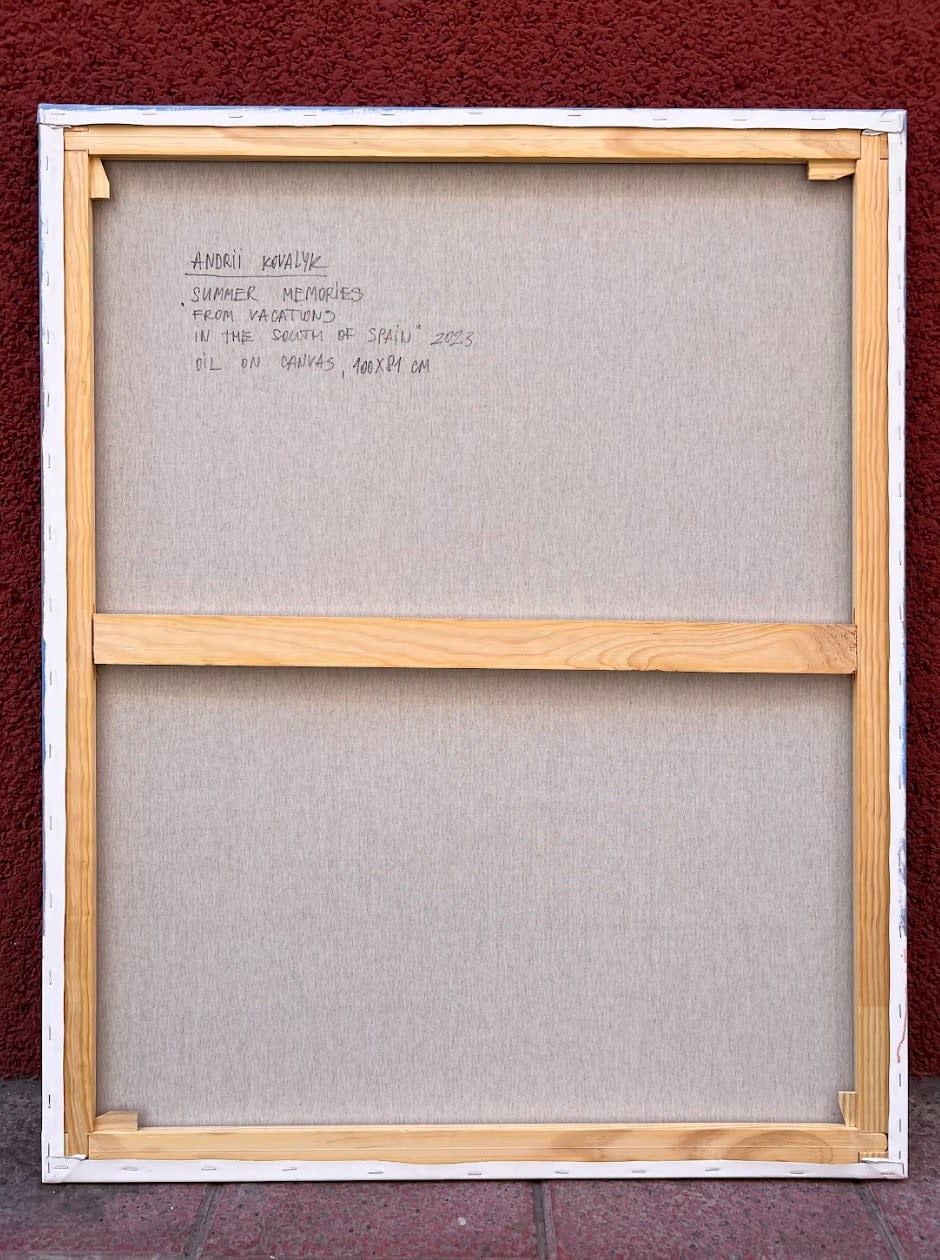 ANDRII KOVALYK
"SUMMER MEMORIES
FROM VACATIONS
IN THE SOUTH OF SPAIN" 2023
OIL ON CANVAS, 100X81 CM